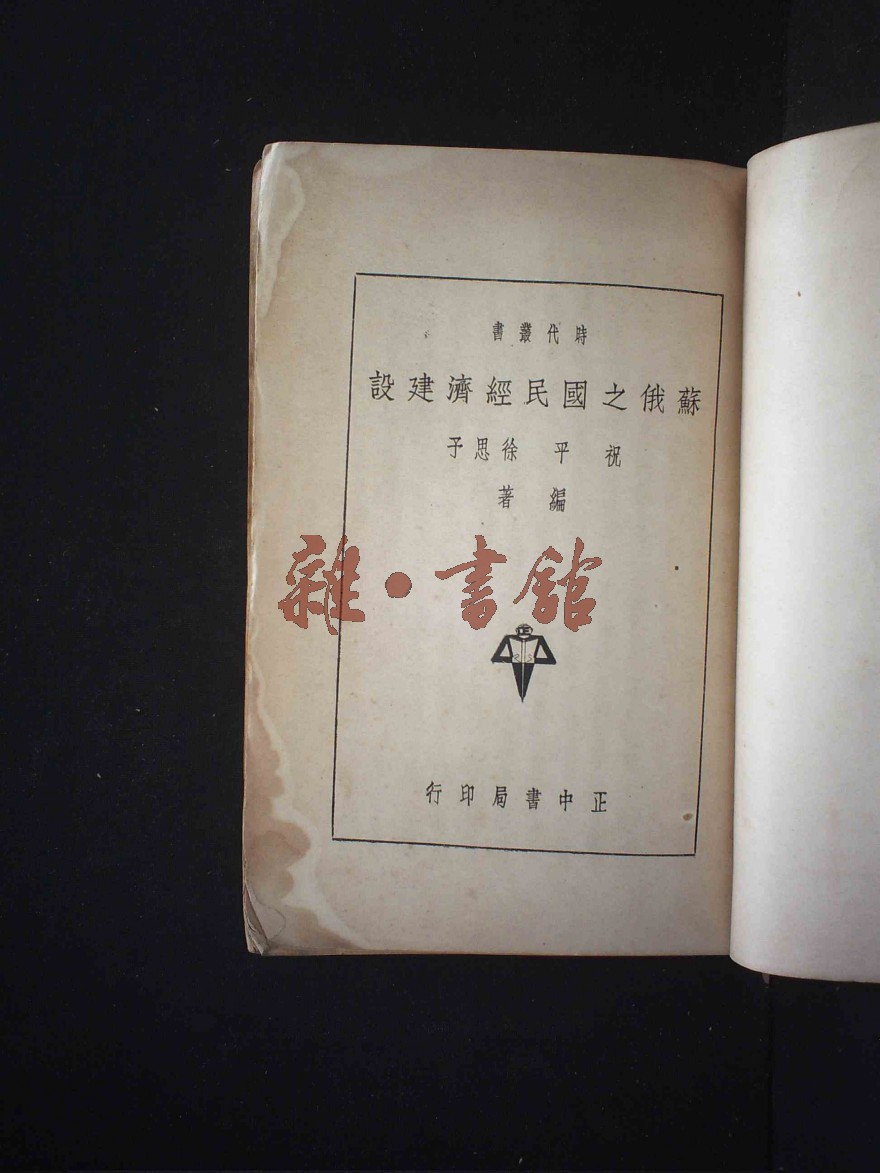 時代叢書
蘇俄之國民經濟建設
祝平 徐思予
編著
雜·書館
正中書局印行